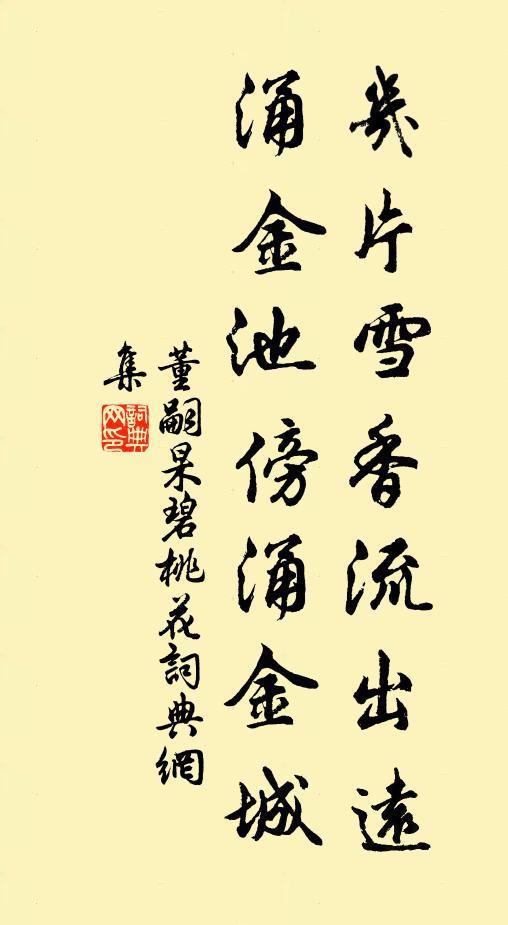 幾片雪香流出遠
涌金池傍涌金城
董嗣杲碧桃花詞典網
集
詞典
网印